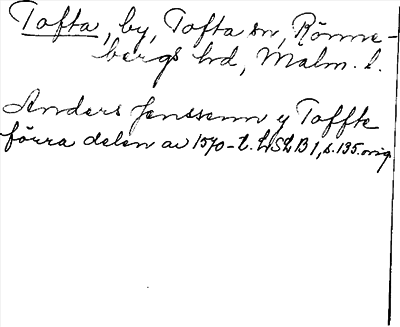 Tofta, by, Tofta sn, Rönne-
bergs hd, Malm. l.
Anders Jenssenn y Toffte
förra delen av 1570-t. LSLB 1, s. 135. orig.